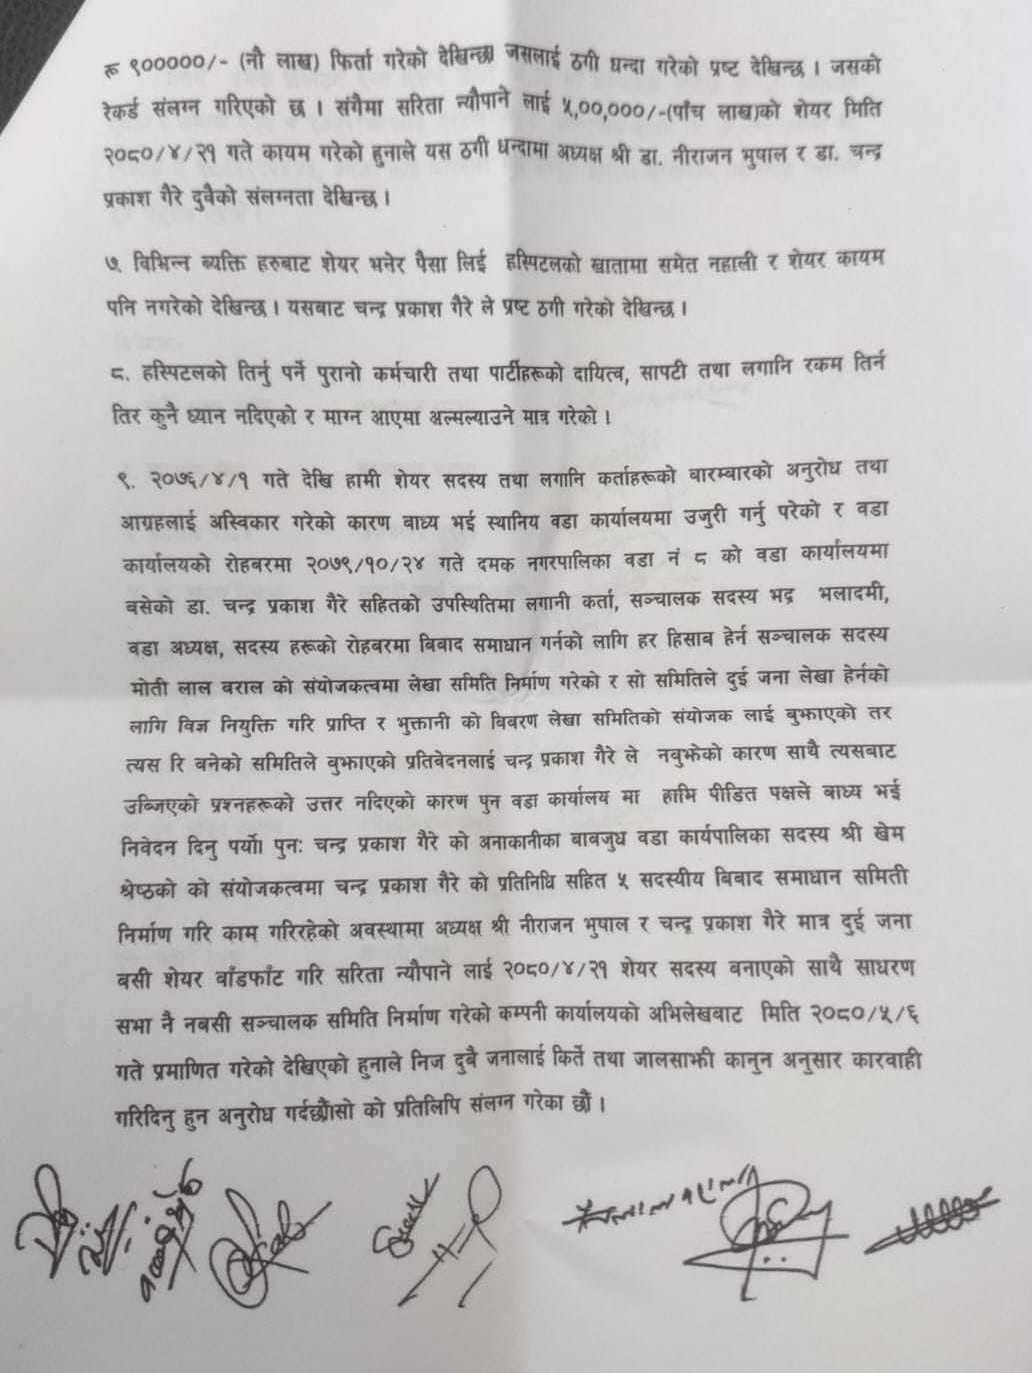 रू ९०००००/- (नौ लाख) फिर्ता गरेको देखिन्छ। जसलाई ठगी धन्दा गरेको प्रष्ट देखिन्छ । जसको
रेकर्ड संलग्न गरिएको छ । संगैमा सरिता न्यौपाने लाई ५,००,०००/-(पाँच लाख)को शेयर मिति
२०८०/४/२१ गते कायम गरेको हुनाले यस ठगी धन्दामा अध्यक्ष श्री डा. नीराजन भुषाल र डा. चन्द्र
प्रकाश गैरे दुवैको संलग्नता देखिन्छ ।
७. विभिन्न ब्यक्ति हरुबाट शेयर भनेर पैसा लिई हस्पिटलको खातामा समेत नहाली र शेयर कायम
पनि नगरेको देखिन्छ । यसबाट चन्द्र प्रकाश गैरे ले प्रष्ट ठगी गरेको देखिन्छ ।
८. हस्पिटलको तिर्नु पर्ने पुरानो कर्मचारी तथा पार्टीहरूको दायित्व, सापटी तथा लगानि रकम तिर्न
तिर कुनै ध्यान नदिएको र माग्न आएमा अल्मल्याउने मात्र गरेको ।
९. २०७६/४/१ गते देखि हामी शेयर सदस्य तथा लगानि कर्ताहरूको बारम्बारको अनुरोध तथा
आग्रहलाई अस्विकार गरेको कारण बाध्य भई स्थानिय वडा कार्यालयमा उजुरी गर्नु परेको र वडा
कार्यालयको रोहबरमा २०७९/१०/२४ गते दमक नगरपालिका वडा नं ८ को वडा कार्यालयमा
बसेको डा. चन्द्र प्रकाश गैरे सहितको उपस्थितिमा लगानी कर्ता, सञ्चालक सदस्य भद्र भलादमी,
वडा अध्यक्ष, सदस्य हरूको रोहबरमा बिबाद समाधान गर्नको लागि हर हिसाब हेर्न सञ्चालक सदस्य
मोती लाल बराल को संयोजकत्वमा लेखा समिति निर्माण गरेको र सो समितिले दुई जना लेखा हेर्नको
लागि विज्ञ नियुक्ति गरि प्राप्ति र भुक्तानी को बिबरण लेखा समितिको संयोजक लाई बुझाएको तर
त्यस रि बनेको समितिले बुझाएको प्रतिवेदनलाई चन्द्र प्रकाश गैरे ले नबुझेको कारण साथै त्यसबाट
उब्जिएको प्रश्नहरूको उत्तर नदिएको कारण पुन वडा कार्यालय मा हामि पीडित पक्षले बाध्य भई
निवेदन दिनु पर्यो। पुनः चन्द्र प्रकाश गैरे को अनाकानीका बाबजुध वडा कार्यपालिका सदस्य श्री खेम
श्रेष्ठको को संयोजकत्वमा चन्द्र प्रकाश गैरे को प्रतिनिधि सहित ५ सदस्यीय बिबाद समाधान समिती
निर्माण गरि काम गरिरहेको अवस्थामा अध्यक्ष श्री नीराजन भुषाल र चन्द्र प्रकाश गैरे मात्र दुई जना
बसी शेयर बाँडफाँट गरि सरिता न्यौपाने लाई २०८०/४/२१ शेयर सदस्य बनाएको साथै साधरण
सभा नै नबसी सञ्चालक समिति निर्माण गरेको कम्पनी कार्यालयको अभिलेखबाट मिति २०८०/५/६
गते प्रमाणित गरेको देखिएको हुनाले निज दुबै जनालाई किर्ते तथा जालसाझी कानुन अनुसार कारवाही
गरिदिनु हुन अनुरोध गर्दछौं।सो को प्रतिलिपि संलग्न गरेका छौं ।